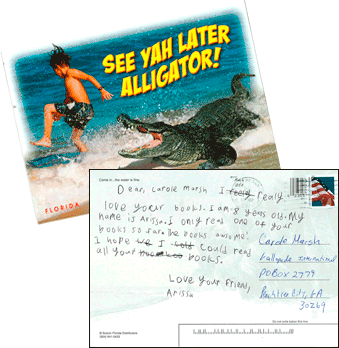 SEE YAH LATER
ALLIGATOR!
FLORIDA
Come in, the water is fine.
Dear, Carole Marsh I really
love your books. I am 8 years old. My
name is Arissa. I only read one of your
books so far. The books awsome!
I hope I could read
all your books.
Love your friend,
Arissa
Carole Marsh
Gallopade International
PO BOX 2779
Peachtree City, GA
30269
Do not write below this line.